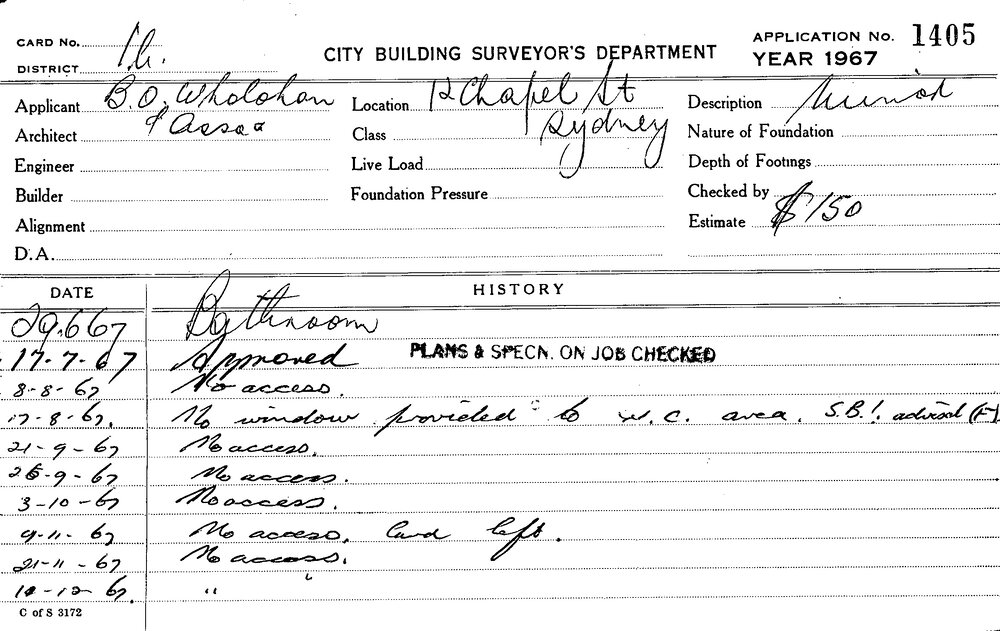 CARD No.
DISTRICT
CITY BUILDING SURVEYOR'S DEPARTMENT
APPLICATION No. 1405
YEAR 1967
Applicant B.O. Wholohan
Architect & Assoc
Engineer
Builder
Alignment
D.A.
Location Chapel St
Class Sydney
Live Load
Foundation Pressure
Description
Nature of Foundation
Depth of Footings
Checked by
Estimate $150
DATE HISTORY
29.6 67 Bathroom
17-7-67 Approved PLANS & SPECN. ON JOB CHECKED
8-8-67 No access.
17-8-67. No window provided to W.C. area. S.B.I. advised
21-9-67 No access.
26-9-67 No access.
3-10-67 No access.
9-11-67 No access. Card left.
21-11-67 No access.
12-67. "
C of S 3172